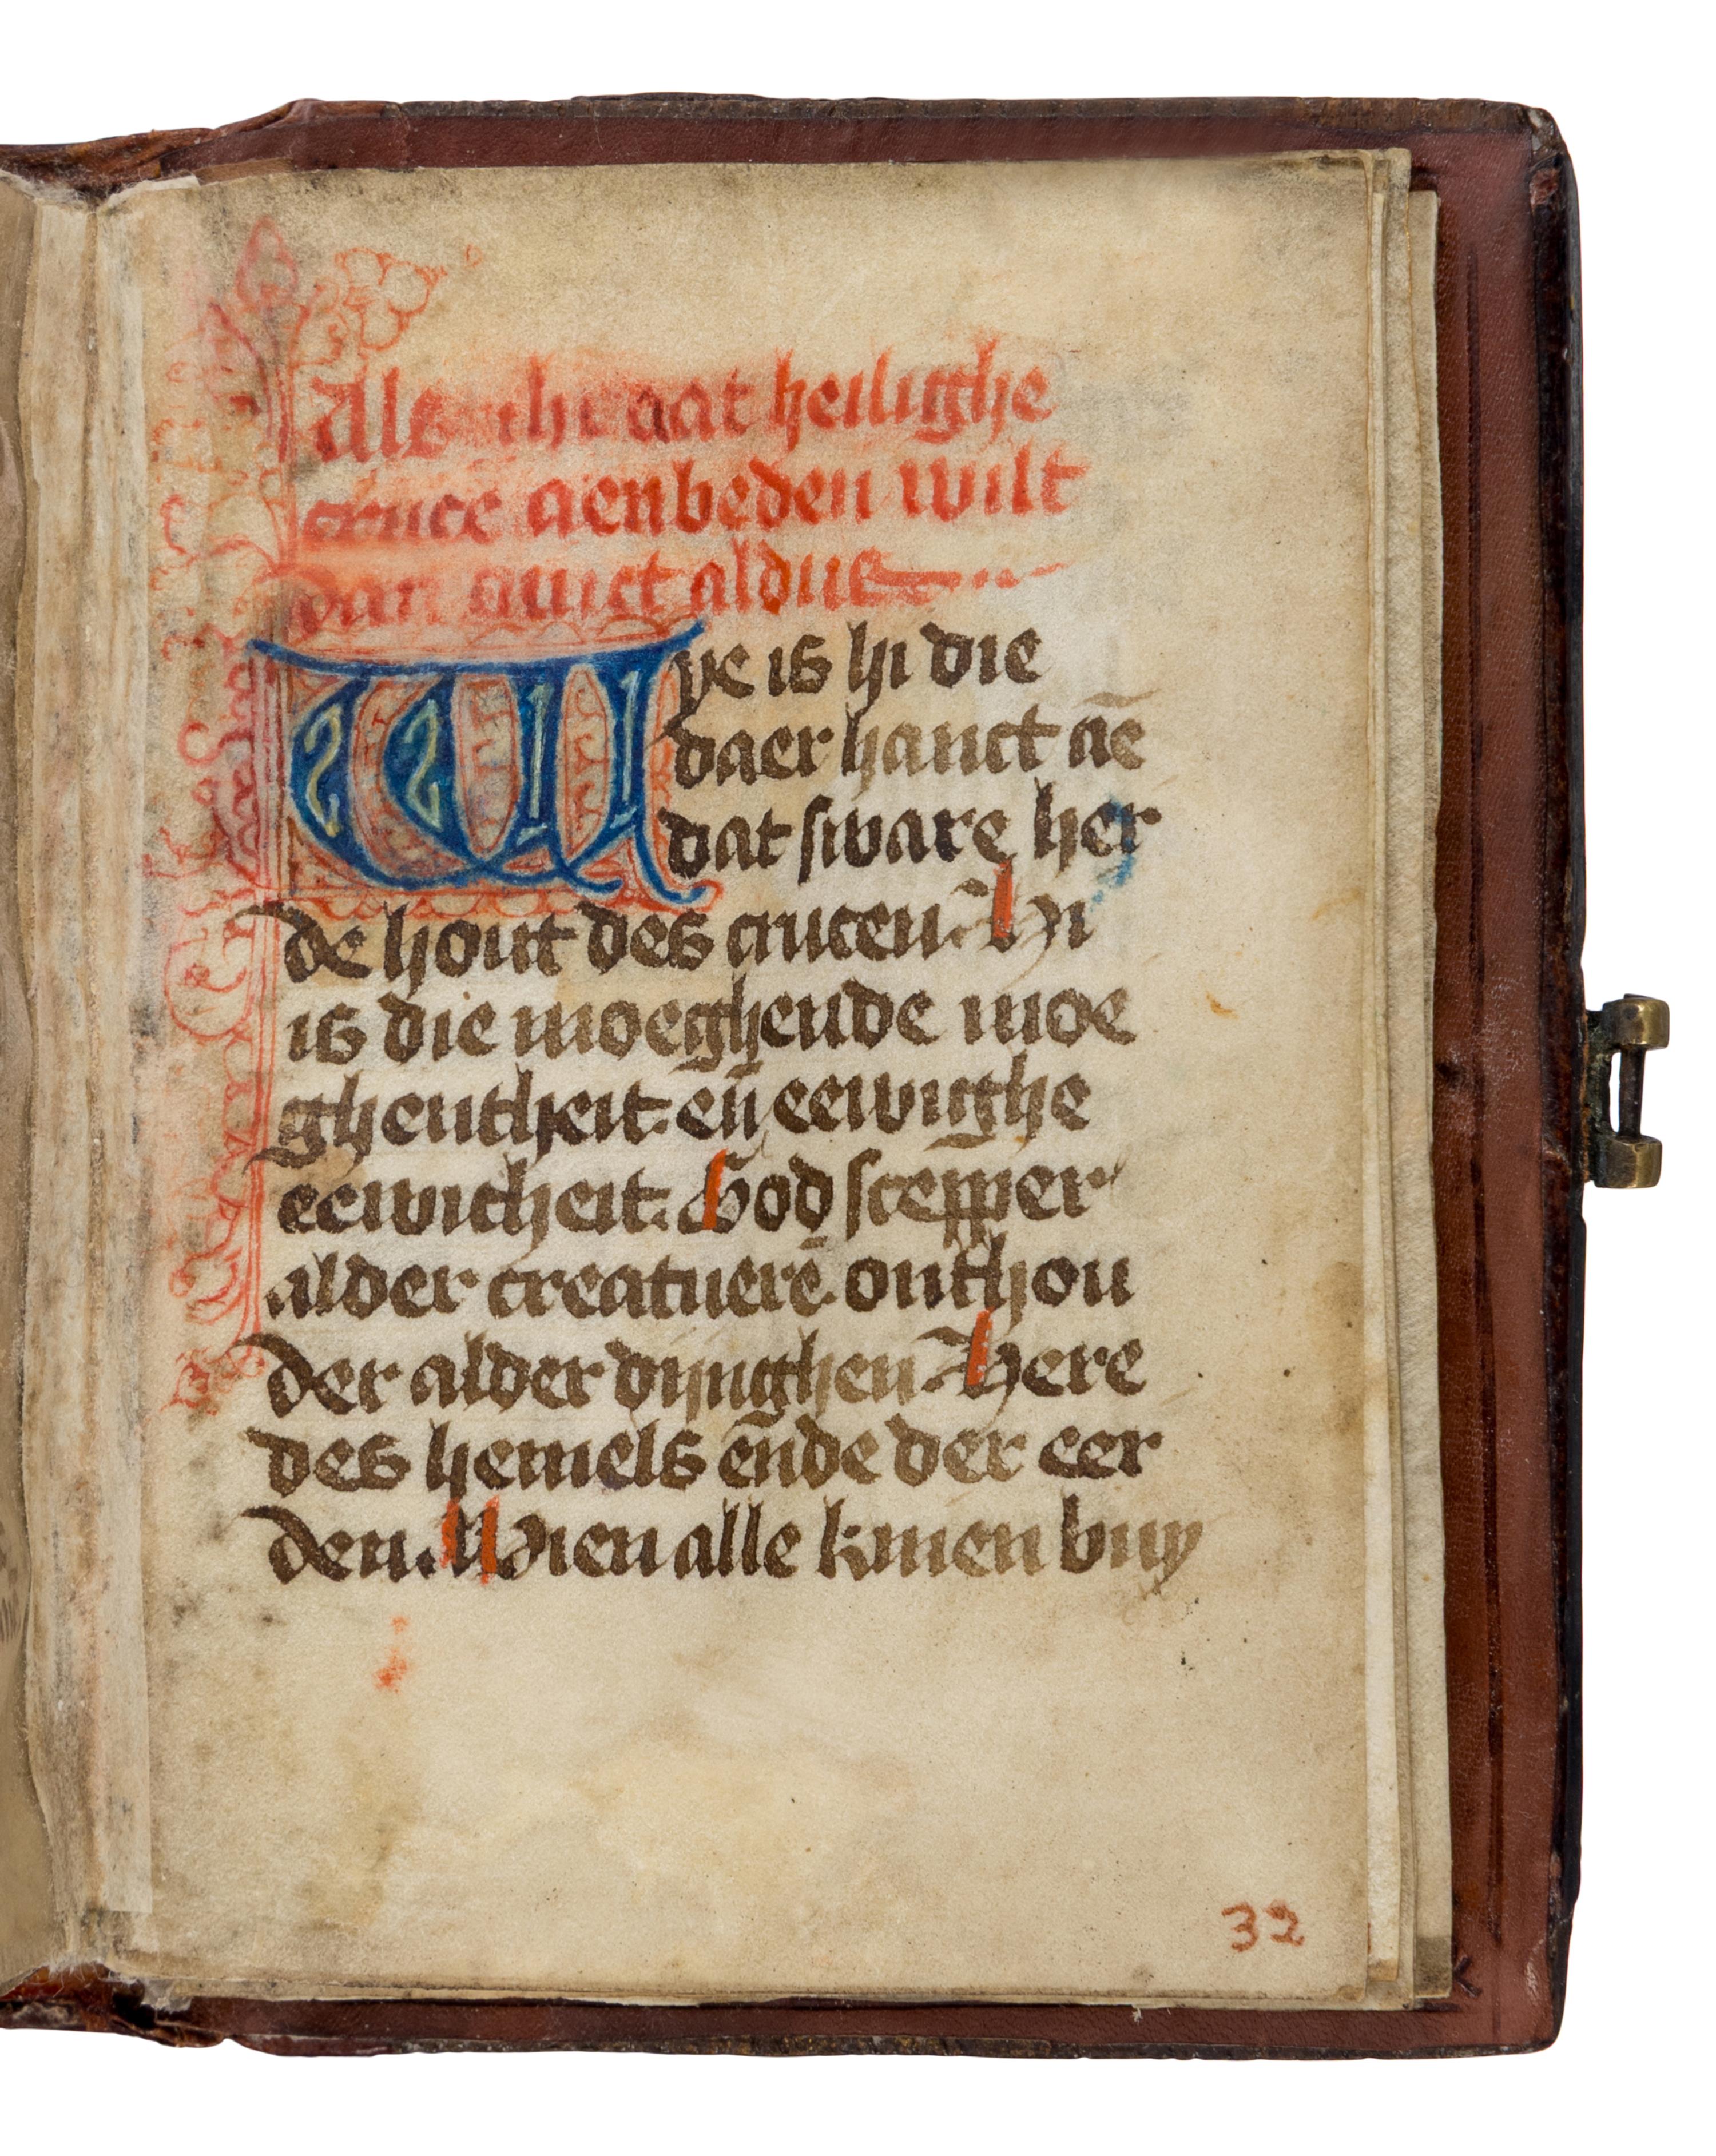 Als ghi dat heilighe
cruce aenbeden wilt
dan aldus
Wye is hi die
daer hanct aē
dat ſware her
de hout des crucen. Hi
is die moeghende moe
ghentheit. eñ eewighe
eewicheit. God ſcepper
alder creatuerē. onthou
der alder dijnghen. Here
des hemels ēnde der eer
den. Wien alle knien buy
32